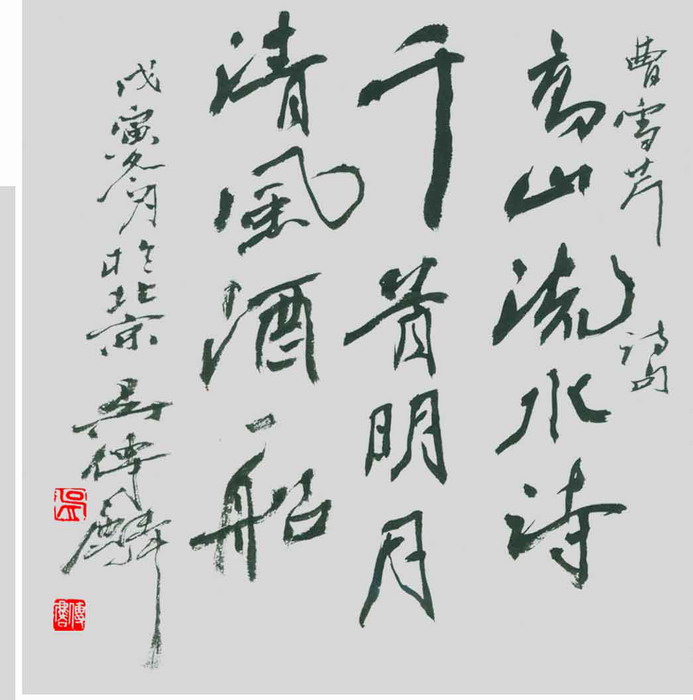 曹雪芹诗句
高山流水诗
千首明月
清風酒一船
戊寅冬月於北京吴傳麟